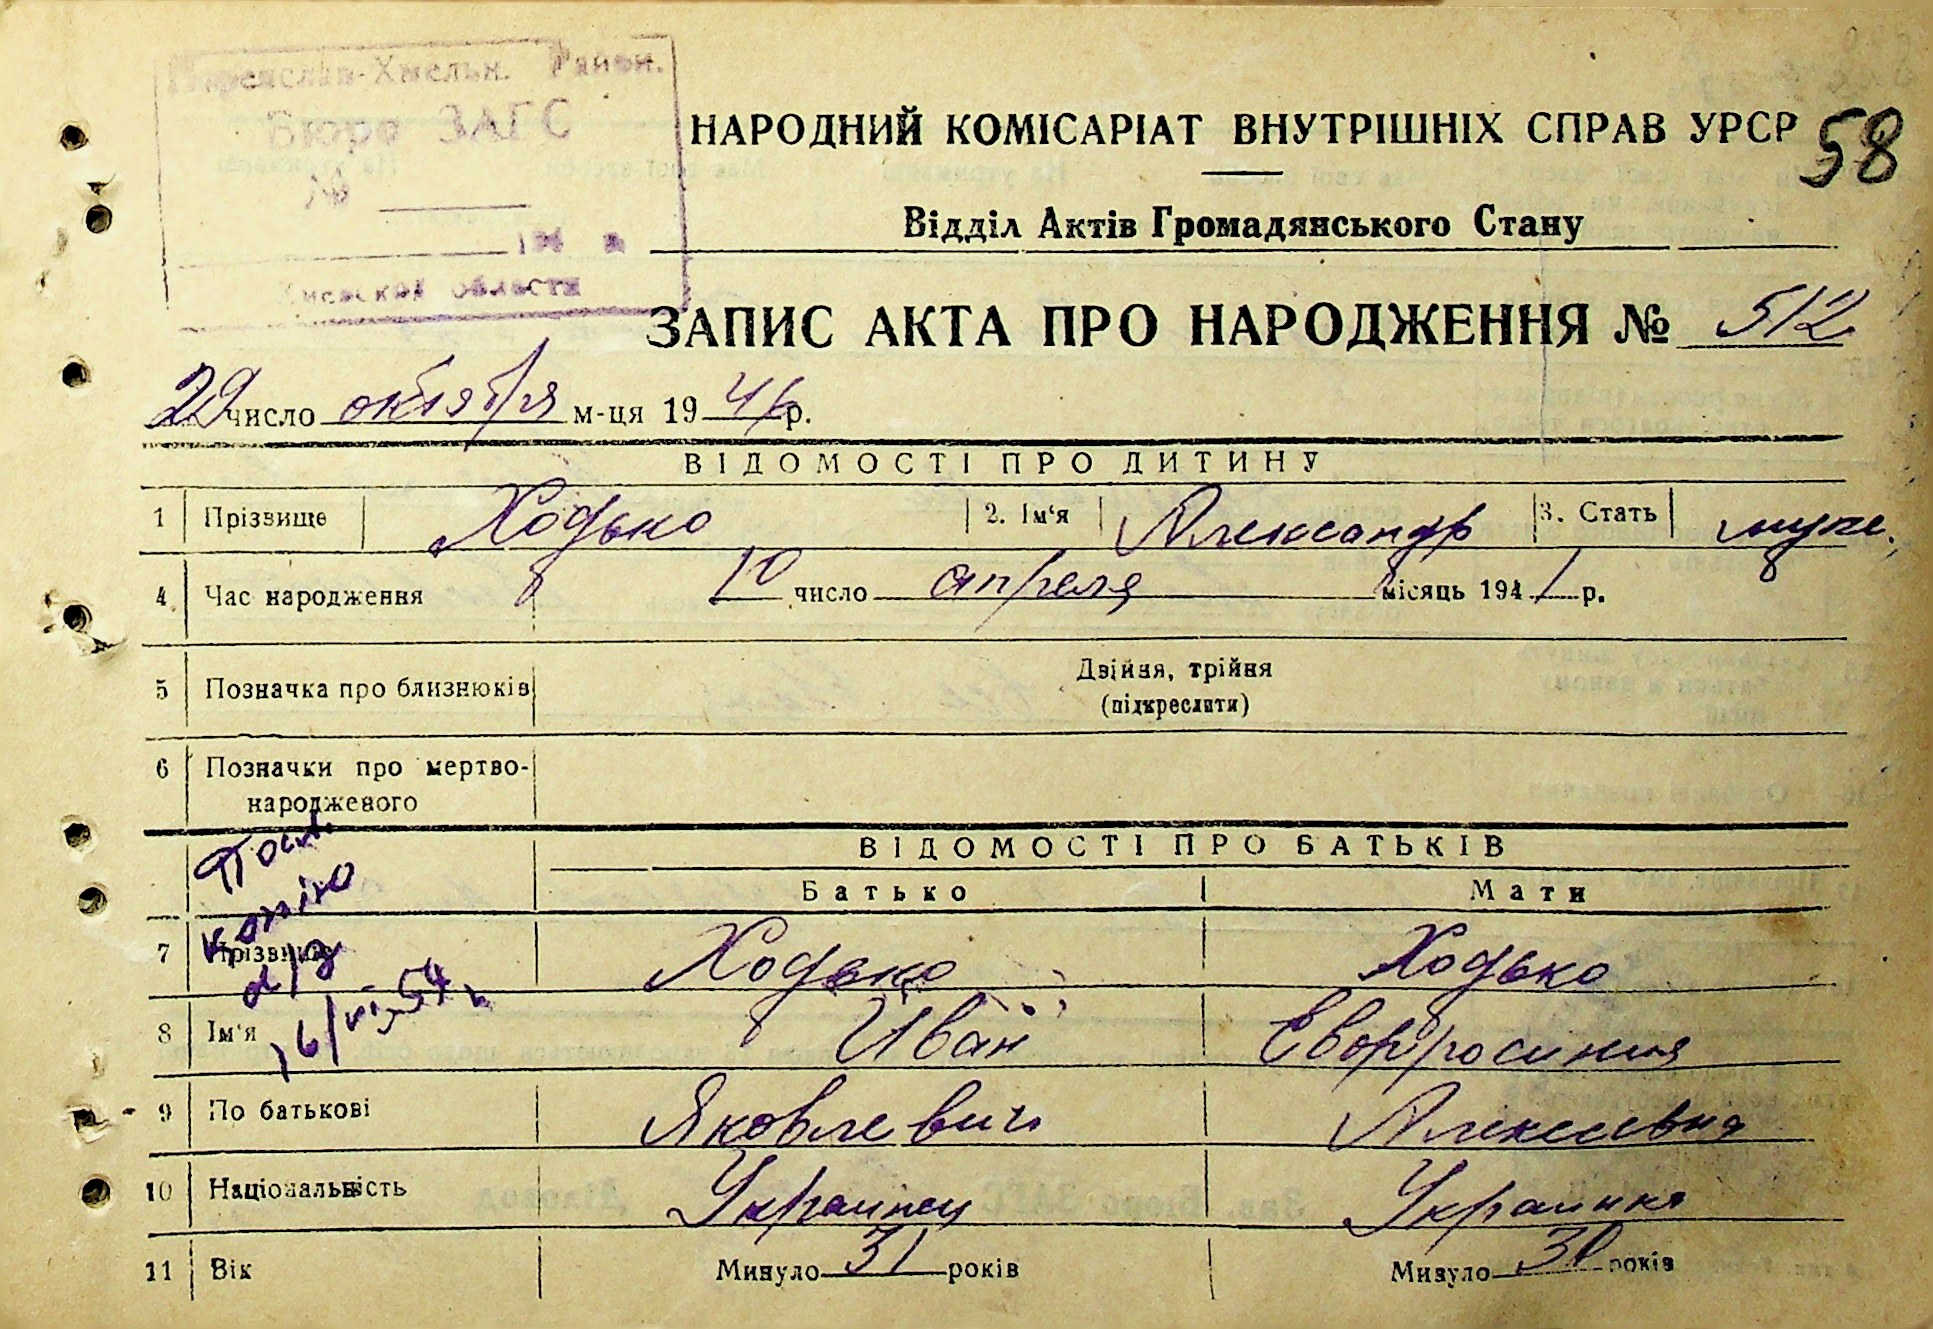 Переяслав-Хмельн. Район.
Бюро ЗАГС
№
194 г.
Киевской области
НАРОДНИЙ КОМІСАРІАТ ВНУТРІШНІХ СПРАВ УРСР
58
Відділ Актів Громадянського Стану
ЗАПИС АКТА ПРО НАРОДЖЕННЯ № 512
29 число октября м-ця 1946 р.
ВІДОМОСТІ ПРО ДИТИНУ
1 Прізвище Ходько 2. Ім'я Александр 3. Стать муж.
4 Час народження 10 число апреля місяць 1941 р.
5 Позначка про близнюків Двійня, трійня
(підкреслити)
6 Позначки про мертво-
народженого
ВІДОМОСТІ ПРО БАТЬКІВ
Батько Мати
копію
7 Прізвище Ходько Ходько
8 Ім'я Иван Евфросиния
9 По батькові Яковлевич Алексеевна
10 Національність Украинец Украинка
11 Вік Минуло 31 років Минуло років